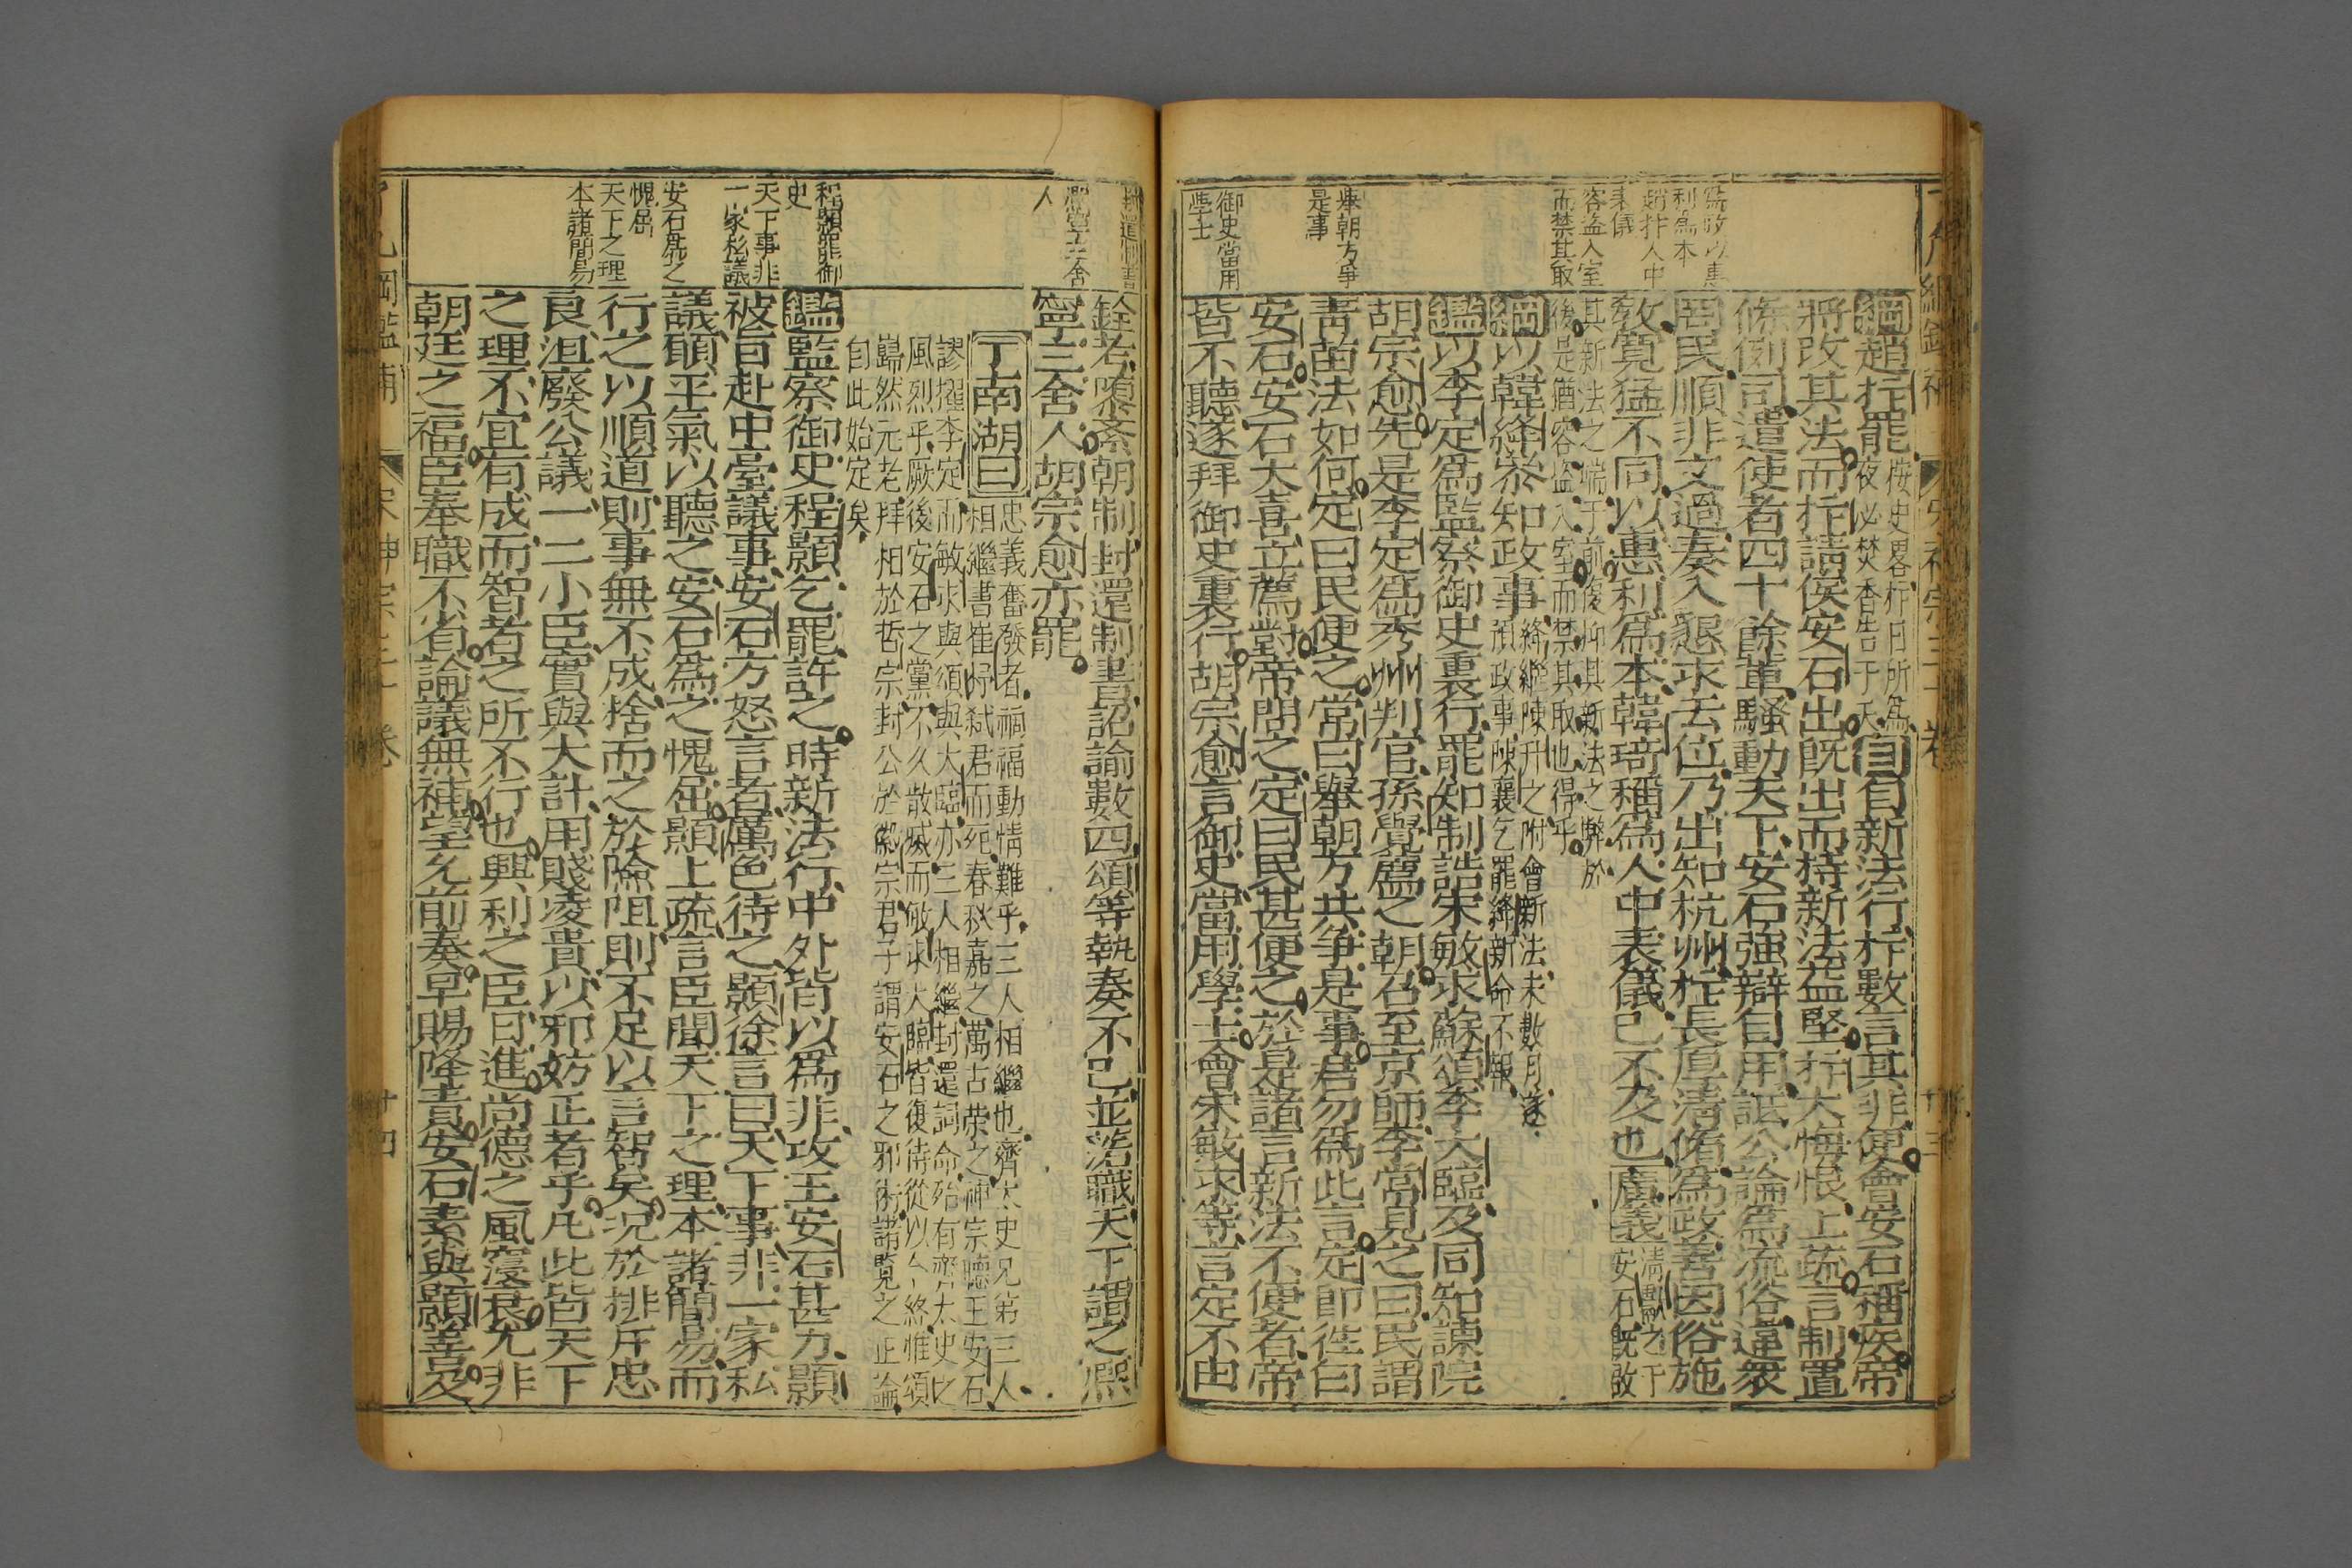 爲政以惠
利爲本
趙抃人中
表儀
容盜入室
而禁其取
舉朝方爭
是事
御史當用
學士
綱趙抃罷按史畧抃日所爲
夜必焚香告于天自自新法行抃數言其非便會安石稱疾帝
將改其法而抃請俟安石出既出而持新法益堅抃大悔恨上疏言制置
條例司遣使者四十餘輩騷動天下安石強辯自用詆公論爲流俗違衆
罔民順非文過奏入懇求去位乃出知杭州抃長厚清脩爲政善因俗施
敎寬猛不同以惠利爲本韓琦稱爲人中表儀已不及也廣義清獻之于
安石既啟
其新法之端于前復抑其新法之弊於
後是猶容盜入室而禁其取也得乎
綱以韓絳參知政事絳繼陳升之附會新法未數月遂
預政事陳襄乞罷絳新命不報
鑑以李定爲監察御史裏行罷知制誥宋敏求蘇頌李大臨及同知諫院
胡宗愈先是李定爲秀州判官孫覺薦之朝召至京師李常見之曰民謂
青苗法如何定曰民便之常曰舉朝方共爭是事君勿爲此言定即徃白
安石安石大喜立薦對帝問之定曰民甚便之於是諸言新法不便者帝
皆不聽遂拜御史裏行胡宗愈言御史當用學士會宋敏求等言定不由
封還制書
熙寧三舍
人
程顥罷御
史
天下事非
一家私議
安石爲之
愧屈
天下之理
本諸簡易
銓若隳紊朝制封還制書詔諭數四頌等執奏不已並落職天下謂之熙
寧三舍人胡宗愈亦罷
丁南湖曰忠義奮發者禍福動情難乎三人相繼也齊太史兄第三人
相繼書崔杼弑君而死春秋嘉之萬古榮之神宗聽王安石
謬擢李定而敏求與頌與大臨亦三人相繼封還詞命殆有齊太史之
風烈乎厥後安石之黨不久散滅而敏求大臨皆復待從以令終惟頌
巋然元老拜相於哲宗封公於徽宗君子謂安石之邪術諸覽之正論
自此始定矣
鑑監察御史程顥乞罷許之時新法行中外皆以爲非攻王安石甚力顥
被旨赴中堂議事安石方怒言者厲色待之顥徐言曰天下事非一家私
議願平氣以聽之安石爲之愧屈顥上疏言臣聞天下之理本諸簡易而
行之以順道則事無不成捨而之於險阻則不足以言智矣況於排斥忠
良沮廢公議一二小臣實與大計用賤凌貴以邪妨正者乎凡此皆天下
之理不宜有成而智者之所不行也興利之臣日進尚德之風寖衰尤非
朝廷之福臣奉職不省論議無補望允前奏早賜降責安石素與顥善及
了凡綱鑑補
宋神宗三十卷
廿四